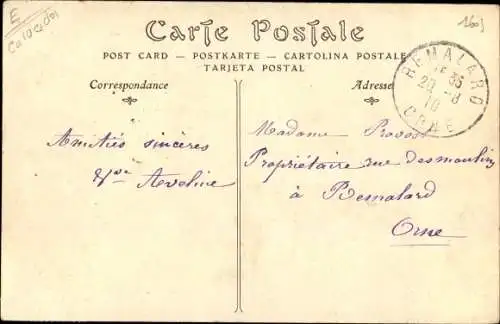 E
Calvados
1603
Carte Postale
POST CARD — POSTKARTE — CARTOLINA POSTALE
TARJETA POSTAL
Correspondance
Adresse
REMALARD
35
20 -8
10
ORNE
Amitiés sincères
Vve Aveline
Madame Provost
Propriétaire rue des moulins
à Remalard
Orne